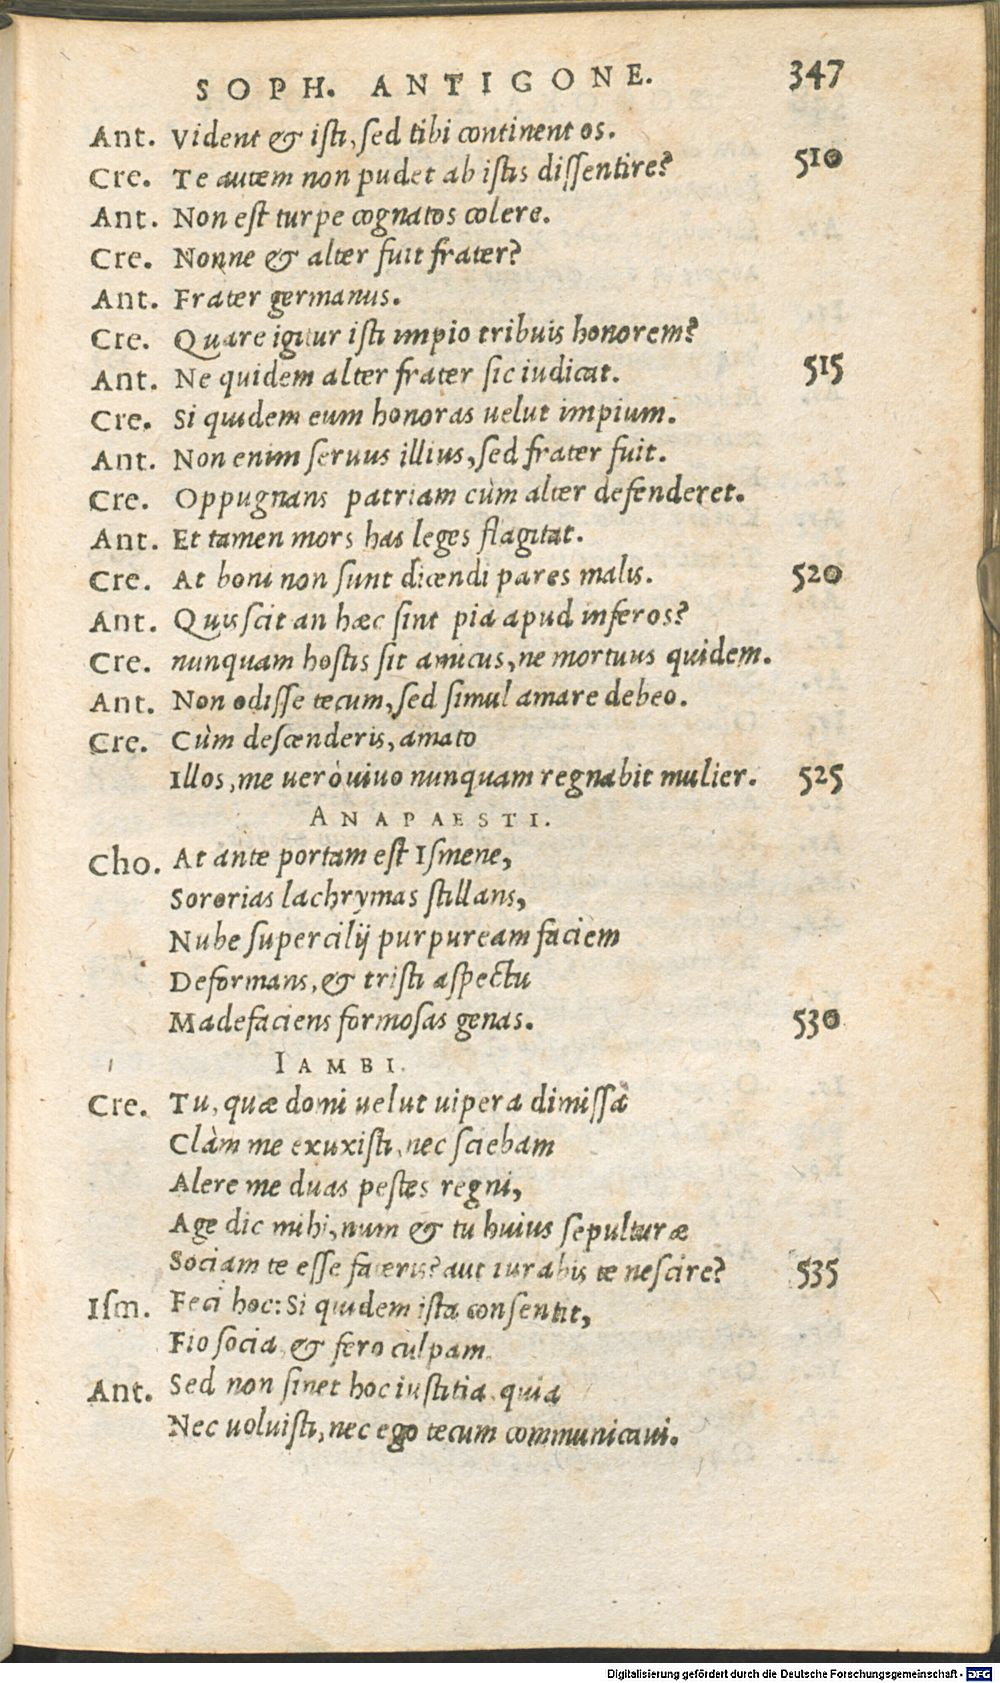 SOPH. ANTIGONE. 347
Ant. Vident & isti, sed tibi continent os.
Cre. Te autem non pudet ab istis dissentire? 510
Ant. Non est turpe cognatos colere.
Cre. Nonne & alter fuit frater?
Ant. Frater germanus.
Cre. Quare igitur isti impio tribuis honorem?
Ant. Ne quidem alter frater sic iudicat. 515
Cre. Si quidem eum honoras uelut impium.
Ant. Non enim seruus illius, sed frater fuit.
Cre. Oppugnans patriam cùm alter defenderet.
Ant. Et tamen mors has leges flagitat.
Cre. At boni non sunt dicendi pares malis. 520
Ant. Quis scit an hæc sint pia apud inferos?
Cre. nunquam hostis sit amicus, ne mortuus quidem.
Ant. Non odisse tecum, sed simul amare debeo.
Cre. Cùm descenderis, amato
Illos, me uerò uiuo nunquam regnabit mulier. 525
ANAPAESTI.
Cho. At ante portam est Ismene,
Sororias lachrymas stillans,
Nube supercilij purpuream faciem
Deformans, & tristi aspectu
Madefaciens formosas genas. 530
IAMBI.
Cre. Tu, quæ domi uelut uipera dimissa
Clàm me exuxisti, nec sciebam
Alere me duas pestes regni,
Age dic mihi, num & tu huius sepulturæ
Sociam te esse fateris? aut iurabis te nescire? 535
Ism. Feci hoc: Si quidem ista consentit,
Fio socia & fero culpam.
Ant. Sed non sinet hoc iustitia, quia
Nec uoluisti, nec ego tecum communicaui.
Digitalisierung gefördert durch die Deutsche Forschungsgemeinschaft - DFG